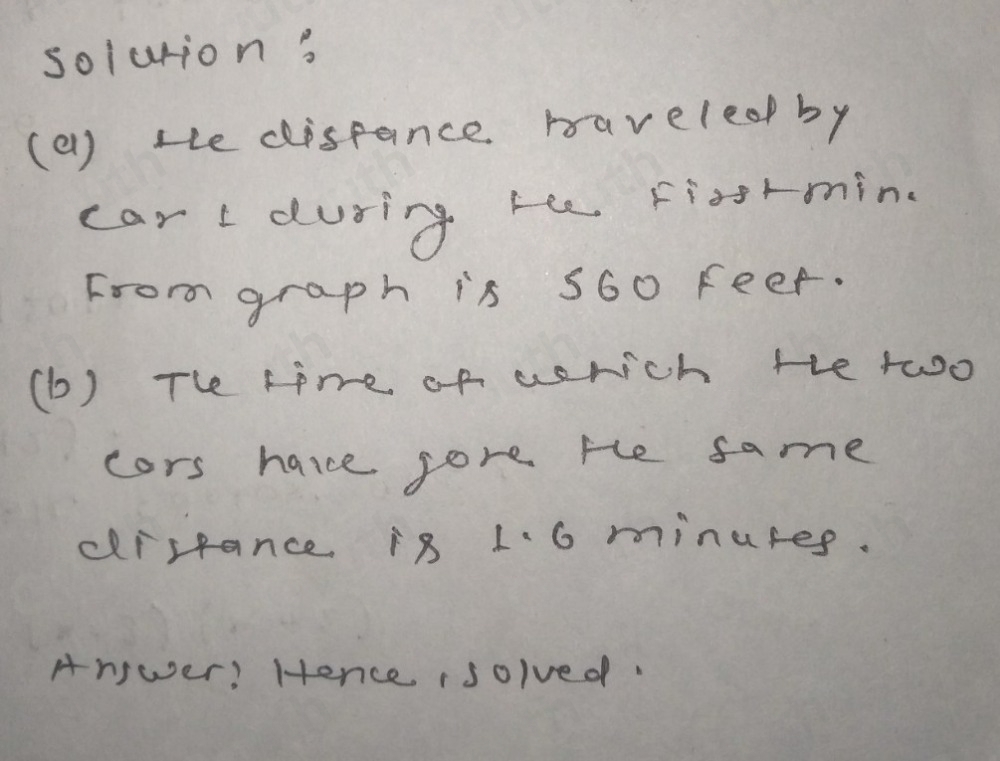 Solution :
(a) The distance traveled by
car 1 during the first min.
From graph is 560 feet.
(b) The time at which the two
cars have gone the same
distance is 1.6 minutes.
Answer: Hence, solved.